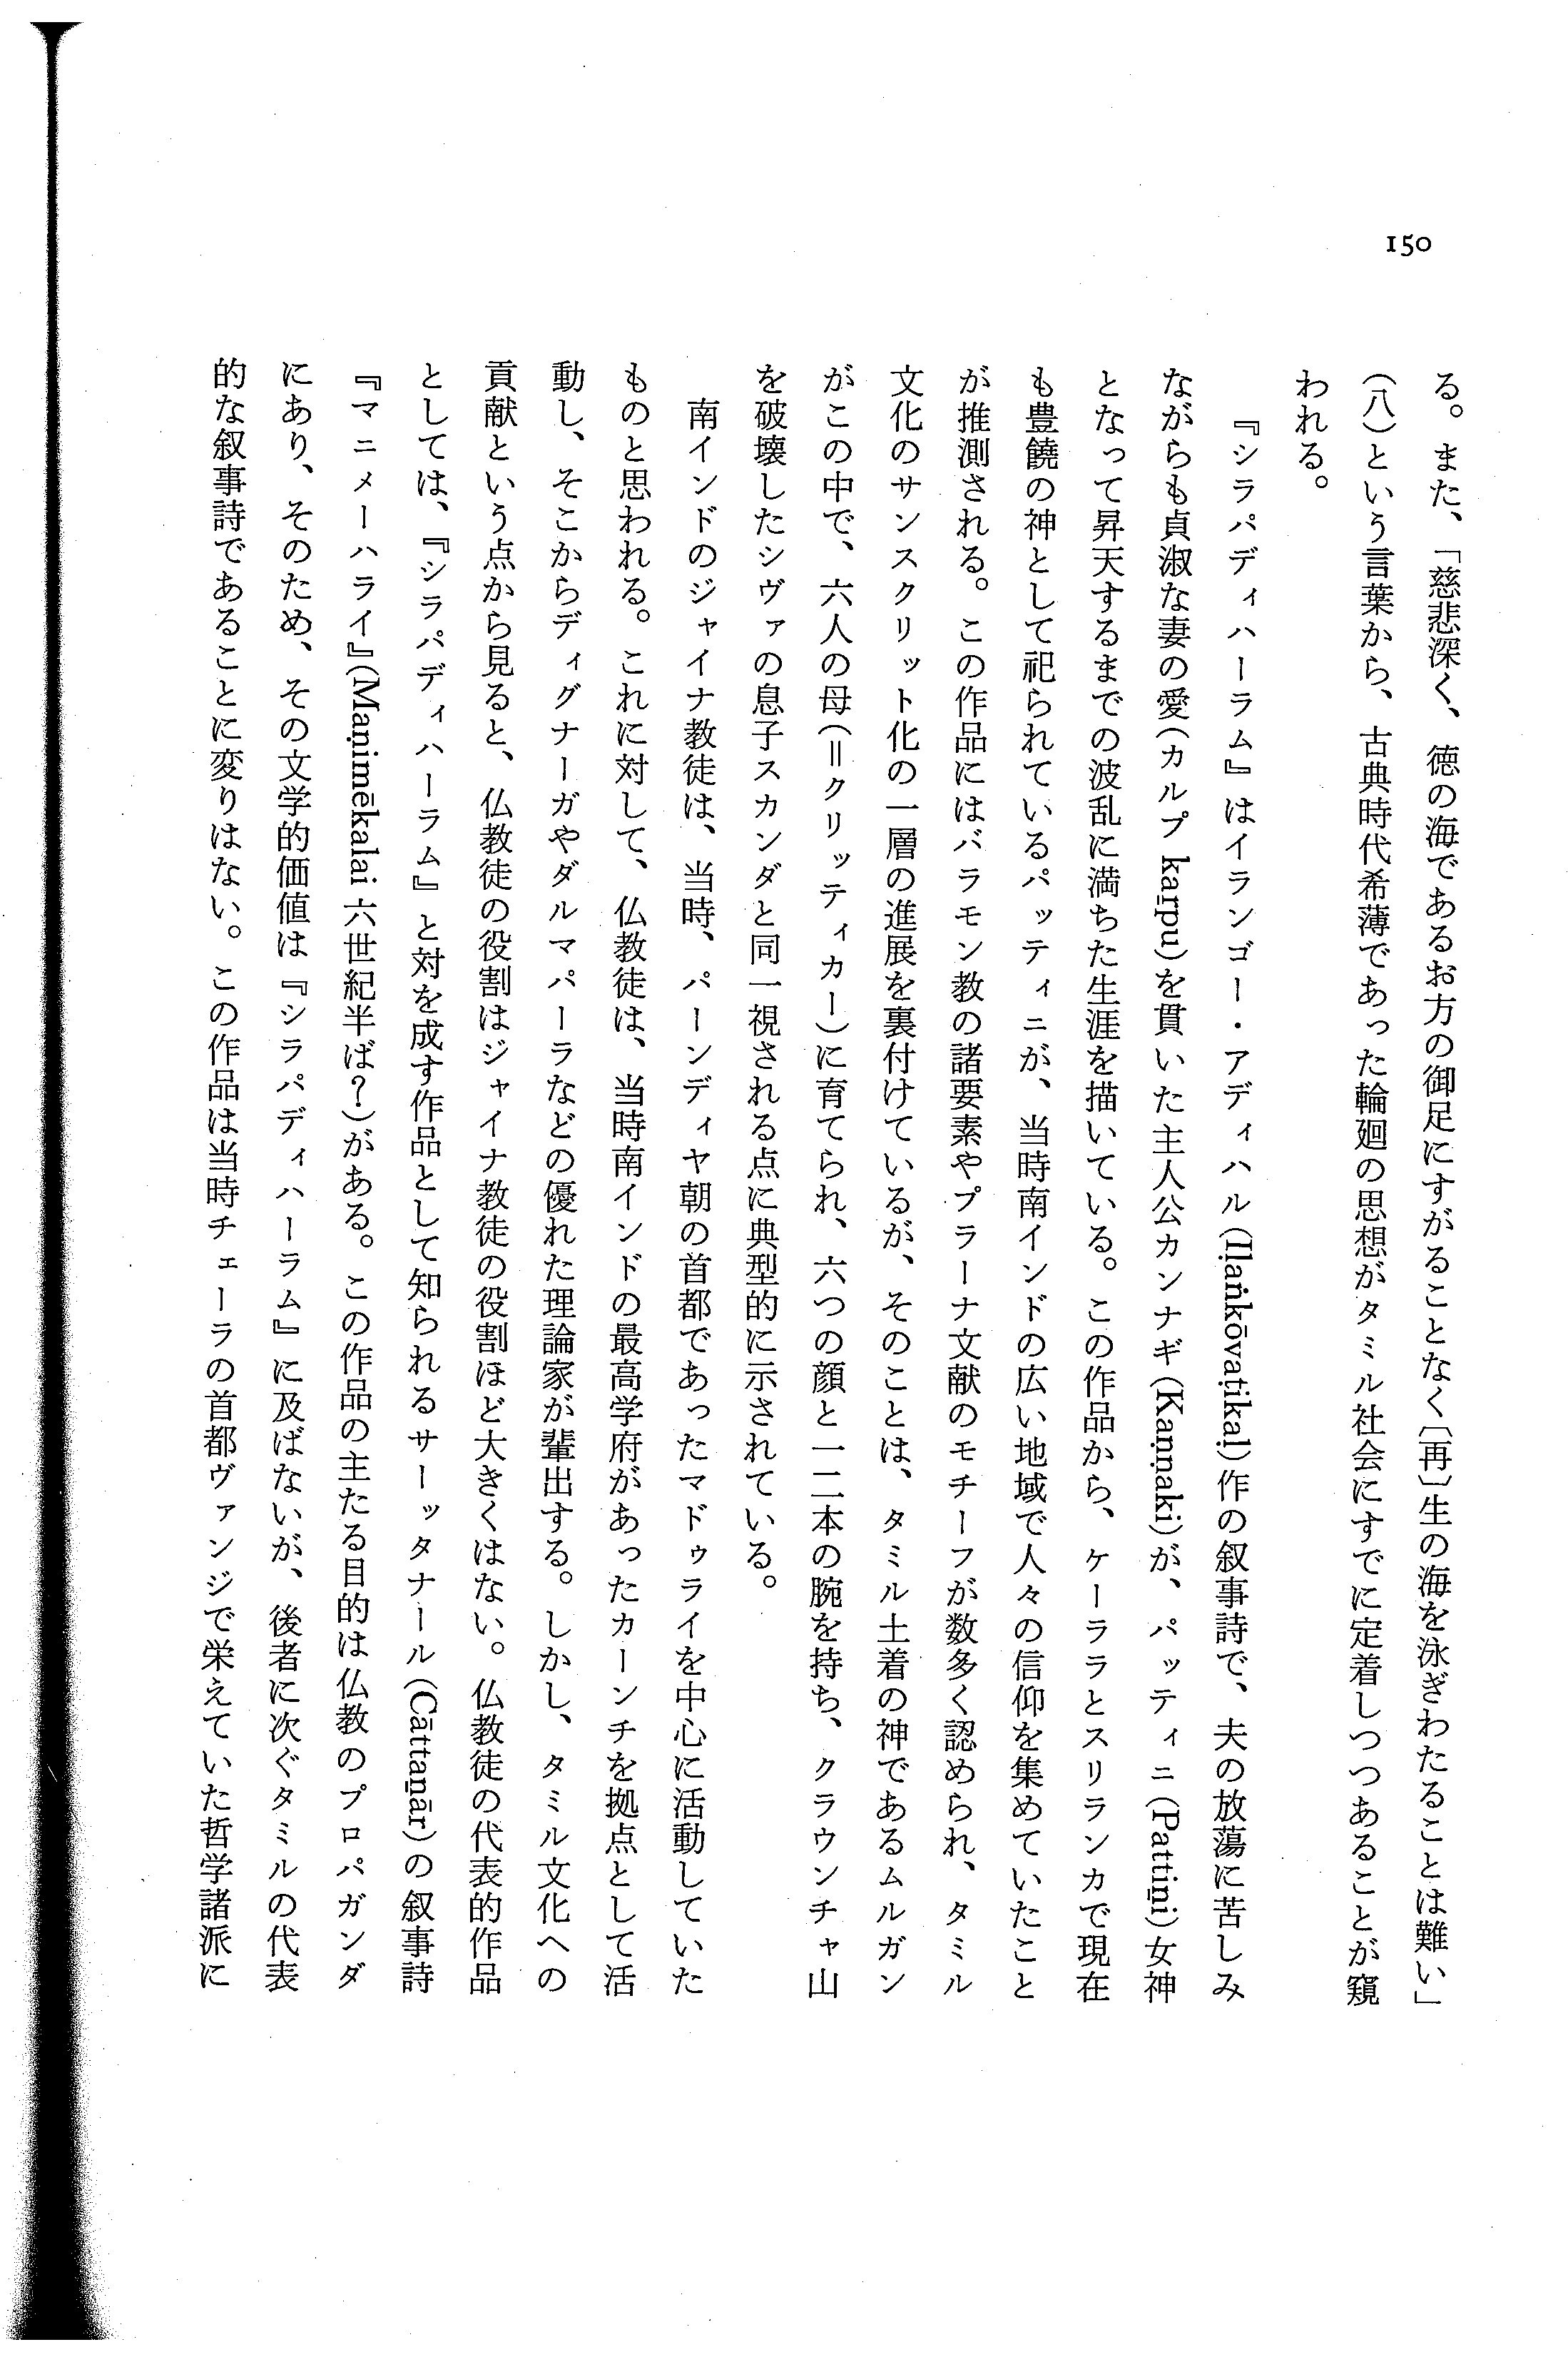 150
る。また、「慈悲深く、徳の海であるお方の御足にすがることなく〔再〕生の海を泳ぎわたることは難い」
(八)という言葉から、古典時代希薄であった輪廻の思想がタミル社会にすでに定着しつつあることが窺
われる。
『シラパディハーラム』はイランゴー・アディハル(Iḷaṅkōvaṭikaḷ)作の叙事詩で、夫の放蕩に苦しみ
ながらも貞淑な妻の愛(カルプ kaṟpu)を貫いた主人公カンナギ(Kaṇṇaki)が、パッティニ(Pattiṉi)女神
となって昇天するまでの波乱に満ちた生涯を描いている。この作品から、ケーララとスリランカで現在
も豊饒の神として祀られているパッティニが、当時南インドの広い地域で人々の信仰を集めていたこと
が推測される。この作品にはバラモン教の諸要素やプラーナ文献のモチーフが数多く認められ、タミル
文化のサンスクリット化の一層の進展を裏付けているが、そのことは、タミル土着の神であるムルガン
がこの中で、六人の母(＝クリッティカー)に育てられ、六つの顔と一二本の腕を持ち、クラウンチャ山
を破壊したシヴァの息子スカンダと同一視される点に典型的に示されている。
南インドのジャイナ教徒は、当時、パーンディヤ朝の首都であったマドゥライを中心に活動していた
ものと思われる。これに対して、仏教徒は、当時南インドの最高学府があったカーンチを拠点として活
動し、そこからディグナーガやダルマパーラなどの優れた理論家が輩出する。しかし、タミル文化への
貢献という点から見ると、仏教徒の役割はジャイナ教徒の役割ほど大きくはない。仏教徒の代表的作品
としては、『シラパディハーラム』と対を成す作品として知られるサーッタナール(Cāttaṉār)の叙事詩
『マニメーハライ』(Maṇimēkalai 六世紀半ば？)がある。この作品の主たる目的は仏教のプロパガンダ
にあり、そのため、その文学的価値は『シラパディハーラム』に及ばないが、後者に次ぐタミルの代表
的な叙事詩であることに変りはない。この作品は当時チェーラの首都ヴァンジで栄えていた哲学諸派に